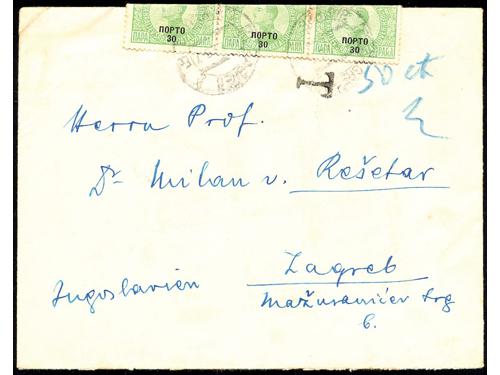 ПОРТО ПОРТО ПОРТО
30 30 30
ПАРА ПАРА ПАРА ПАРА
T
50 ct
Herrn Prof.
Dr Milan v. Rešetar
Zagreb
Jugoslavien
Mažuranićev trg
6.